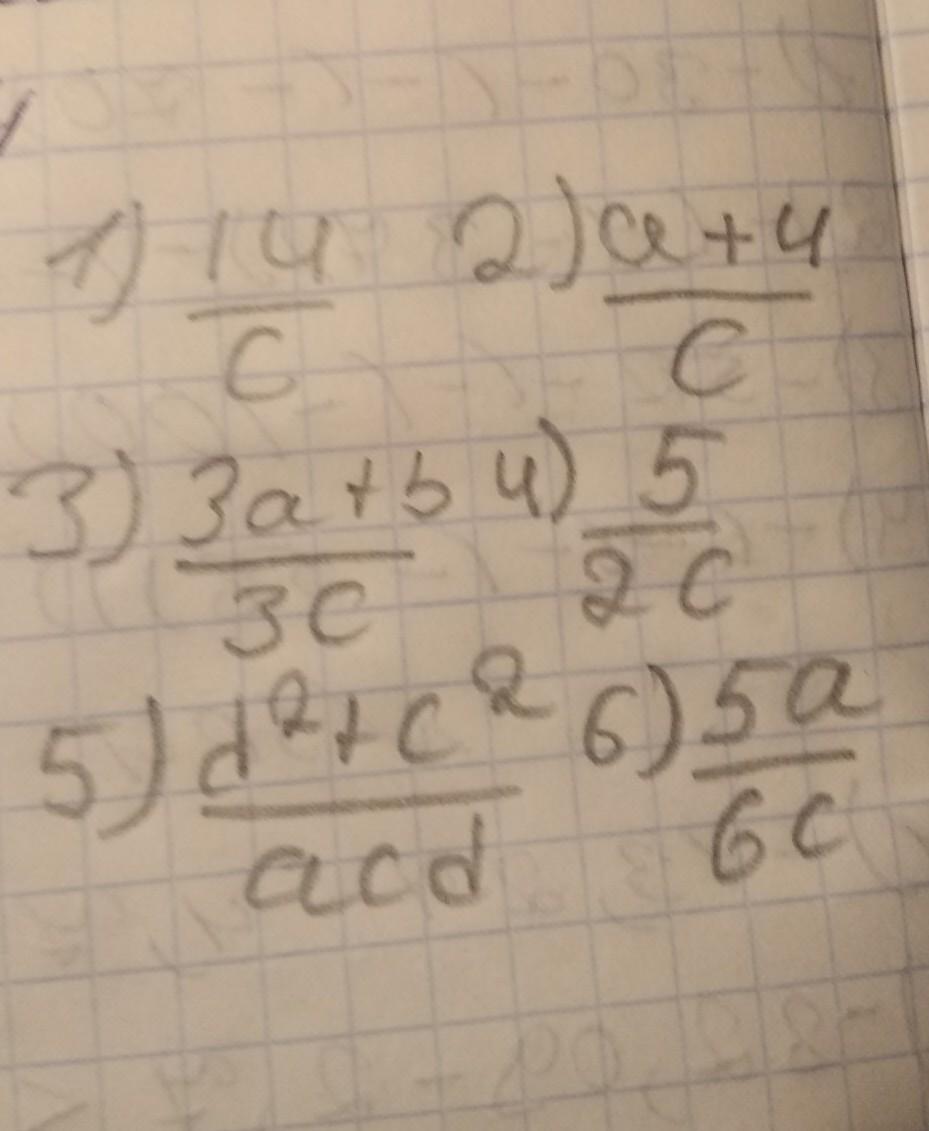 1) 14/c 2) a+4/c
3) 3a+b/3c 4) 5/2c
5) d²+c²/acd 6) 5a/6c